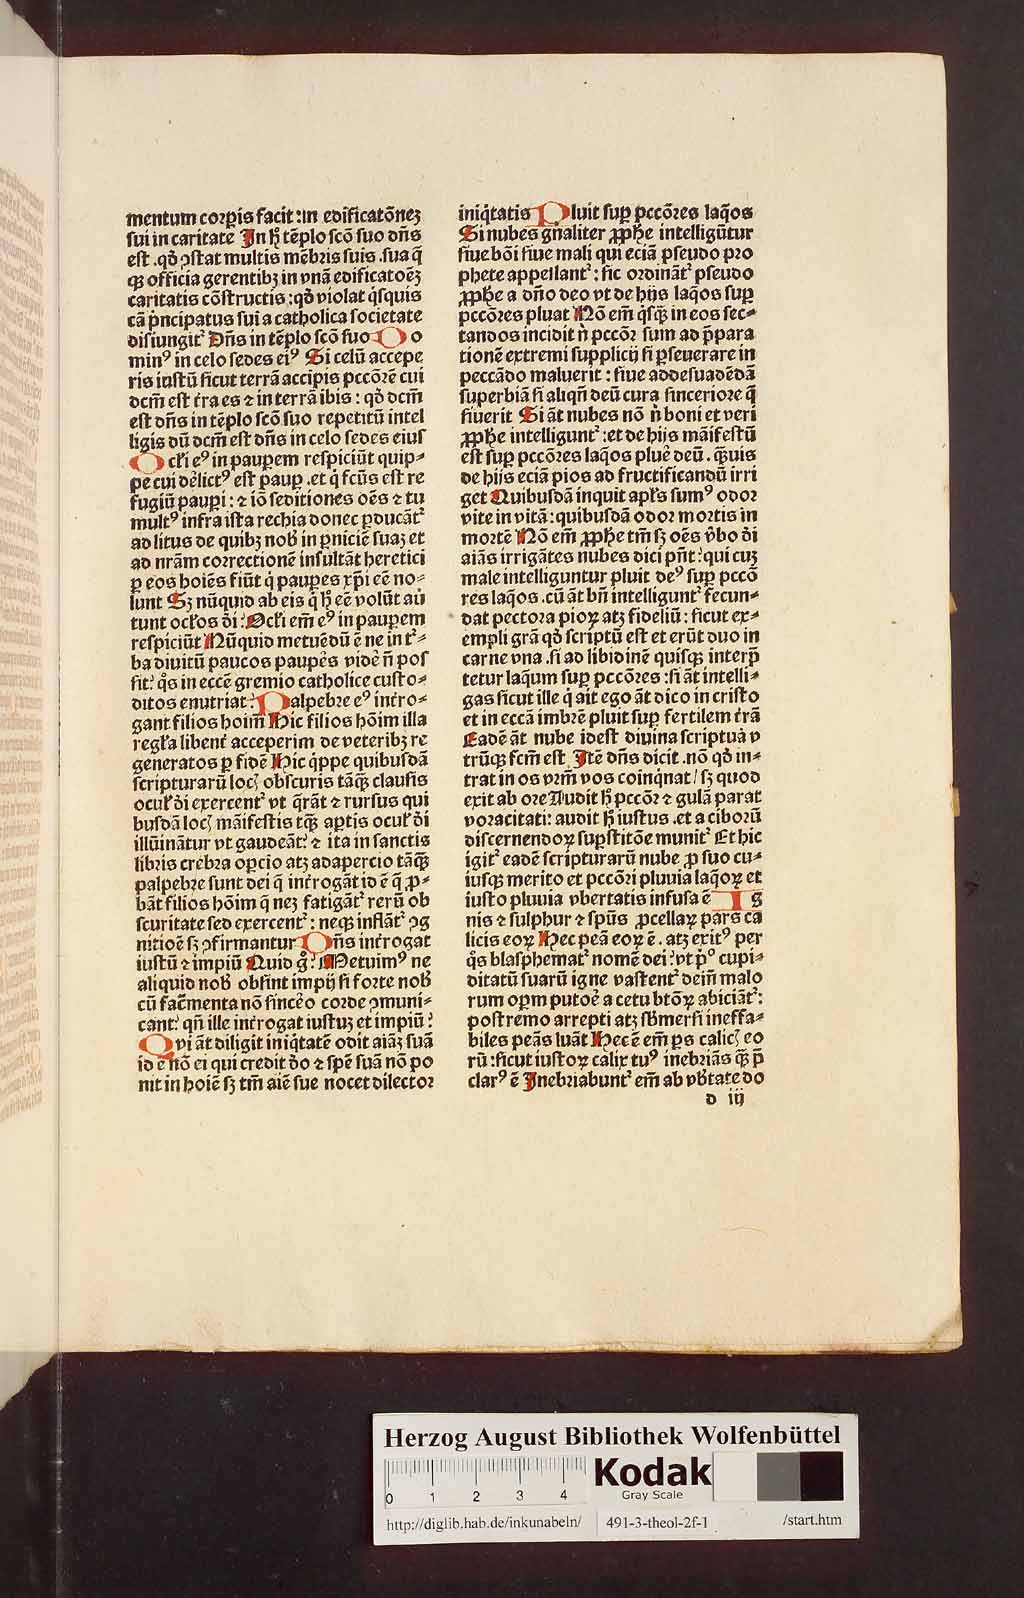 mentum corꝑis facit :in edificatōnez
sui in caritate In ħ tēplo scō suo dn̄s
est .qđ ꝯstat multis mēbris suis .sua q̄
qꝫ officia gerentibꝫ in vnā edificatōeꝫ
caritatis cōstructis :qđ violat q̇squis
cā p̄ncipatus sui a catholica societate
disiungitᷣ Dn̄s in tēplo scō suo Do
minꝰ in celo sedes eiꝰ Si celū accepe
ris iustū sicut terrā accipis pccōrē cui
dcm̄ est t̄ra es ⁊ in terrā ibis : qđ dcm̄
est dn̄s in tēplo scō suo repetitū intel
ligis dū dcm̄ est dn̄s in celo sedes eius
Ocłi eꝰ in pauꝑem respiciūt quip⸗
pe cui đelictꝰ est pauꝑ .et q̇ fcūs est re
fugiū pauꝑi : ⁊ iō seditiones oēs ⁊ tu
multꝰ infra ista rechia donec ꝑducātᷣ
ad litus de quibꝫ nob̄ in ꝑniciē suaꝫ et
ad nr̄am correctionē insultāt heretici
ꝑ eos hoiēs fiūt q̇ pauꝑes xp̄i eē no⸗
lunt Sꝫ nūquid ab eis q̇ ħ eē volūt au
tunt ocłos đi : Ocłi em̄ eꝰ in pauꝑem
respiciūt Nūquid metuēdū ē ne in tᷣ⸗
ba diuitū paucos pauꝑes vidē n̄ pos
sit: q̊s in eccē gremio catholice custo⸗
ditos enutriat: Palpebre eꝰ int̄ro⸗
gant filios hoim̄ Hic filios hōim illa
regła libent̄ acceperim de veteribꝫ re
generatos ꝑ fidē Hic q̇ppe quibusdā
scripturarū locꝭ obscuris tāqꝫ clausis
ocuł đi exercentᷣ vt q̄rāt ⁊ rursus qui
busdā locꝭ māifestis tqꝫ aꝑtis ocuł đi
illūinātur vt gaudeāt: ⁊ ita in sanctis
libris crebra opcio atꝫ adapercio tāqꝫ
palpebre sunt dei q̄ int̄rogāt id ē q̄ ꝓ⸗
bāt filios hōim q̇ nez fatigātᷣ rerū ob
scuritate sed exercentᷣ : neqꝫ inflātᷣ ꝯg
nitiōe sꝫ ꝯfirmantur Dn̄s int̄rogat
iustū ⁊ impiū Quid g̊: Metuimꝰ ne
aliquid nob̄ obsint impij si forte nob̄
cū fac̄menta nō sincēo corde ꝯmuni⸗
cant: qn̄ ille int̄rogat iustuꝫ et impiū:
Qvi āt diligit iniq̇tatē odit aiāꝫ suā
id ē nō ei qui credit đo ⁊ spē suā nō po
nit in hoiē sꝫ tm̄ aiē sue nocet dilector
iniq̇tatis Pluit suꝑ pccōres laq̊os
Si nubes gn̄aliter ꝓpħe intelligūtur
siue bōi siue mali qui eciā pseudo pro
phete appellantᷣ : sic ordinātᷣ pseudo
ꝓpħe a dn̄o deo vt de hijs laq̊os suꝑ
pccōres pluat Nō em̄ q̇sqꝫ in eos sec⸗
tandos incidit n̊ pccōr sum ad p̄para
tionē extremi supplicij si ꝑseuerare in
peccādo maluerit : siue addesuadēdā
superbiā si aliqn̄ deū cura sinceriore q̄
siuerit Si āt nubes nō n̊ boni et veri
ꝓpħe intelliguntᷣ :et de hijs māifestū
est suꝑ pccōres laq̊os pluē deū . qꝫuis
de hijs eciā pios ad fructificandū irri
get Quibusdā inquit apłs sumꝰ odor
vite in vitā : quibusdā odor mortis in
mortē Nō em̄ ꝓpħe tm̄ sꝫ oēs v̄bo đi
aiās irrigātes nubes dici pn̄t : qui cuꝫ
male intelliguntur pluit deꝰ suꝑ pccō
res laq̊os .cū āt bn̄ intelliguntᷣ fecun⸗
dat pectora pioꝝ atꝫ fideliū : sicut ex⸗
empli grā qđ scriptū est et erūt duo in
carne vna .si ad libidinē quisqꝫ interp̄
tetur laq̄um suꝑ pccōres :si āt intelli⸗
gas sicut ille q̇ ait ego āt dico in cristo
et in eccā imbrē pluit suꝑ fertilem t̄rā
Eadē āt nube idest diuina scriptuā v
trūqꝫ fcm̄ est Itē dn̄s dicit .nō qđ in⸗
trat in os vrm̄ vos coinq̇nat / sꝫ quod
exit ab ore Audit ħ pccōr ⁊ gulā parat
voracitati: audit ħ iustus .et a ciborū
discernendoꝝ suꝑstitōe munitᷣ Et hic
igitᷣ eadē scripturarū nube ꝓ suo cu⸗
iusqꝫ merito et pccōri pluuia laq̊oꝝ et
iusto pluuia vbertatis infusa ē Ig
nis ⁊ sulphur ⁊ spūs ꝓcellaꝝ pars ca
licis eoꝝ Hec peā eoꝝ ē . atꝫ exitꝰ per
q̊s blasphematᷣ nomē dei : vt p̊ cupi⸗
ditatū suarū igne vastentᷣ dein̄ malo
rum oꝑm putoē a cetu btōꝝ abiciātᷣ:
postremo arrepti atꝫ sb̄mersi ineffa⸗
biles peās luāt Hec ē em̄ ꝑs calicꝭ eo
rū :sicut iustoꝝ calix tuꝰ inebriās qꝫ p̄
clarꝰ ē Inebriabuntᷣ em̄ ab vb̄tate do
d iij
Herzog August Bibliothek Wolfenbüttel
0 1 2 3 4
Kodak
Gray Scale
http://diglib.hab.de/inkunabeln/ 491-3-theol-2f-1 /start.htm